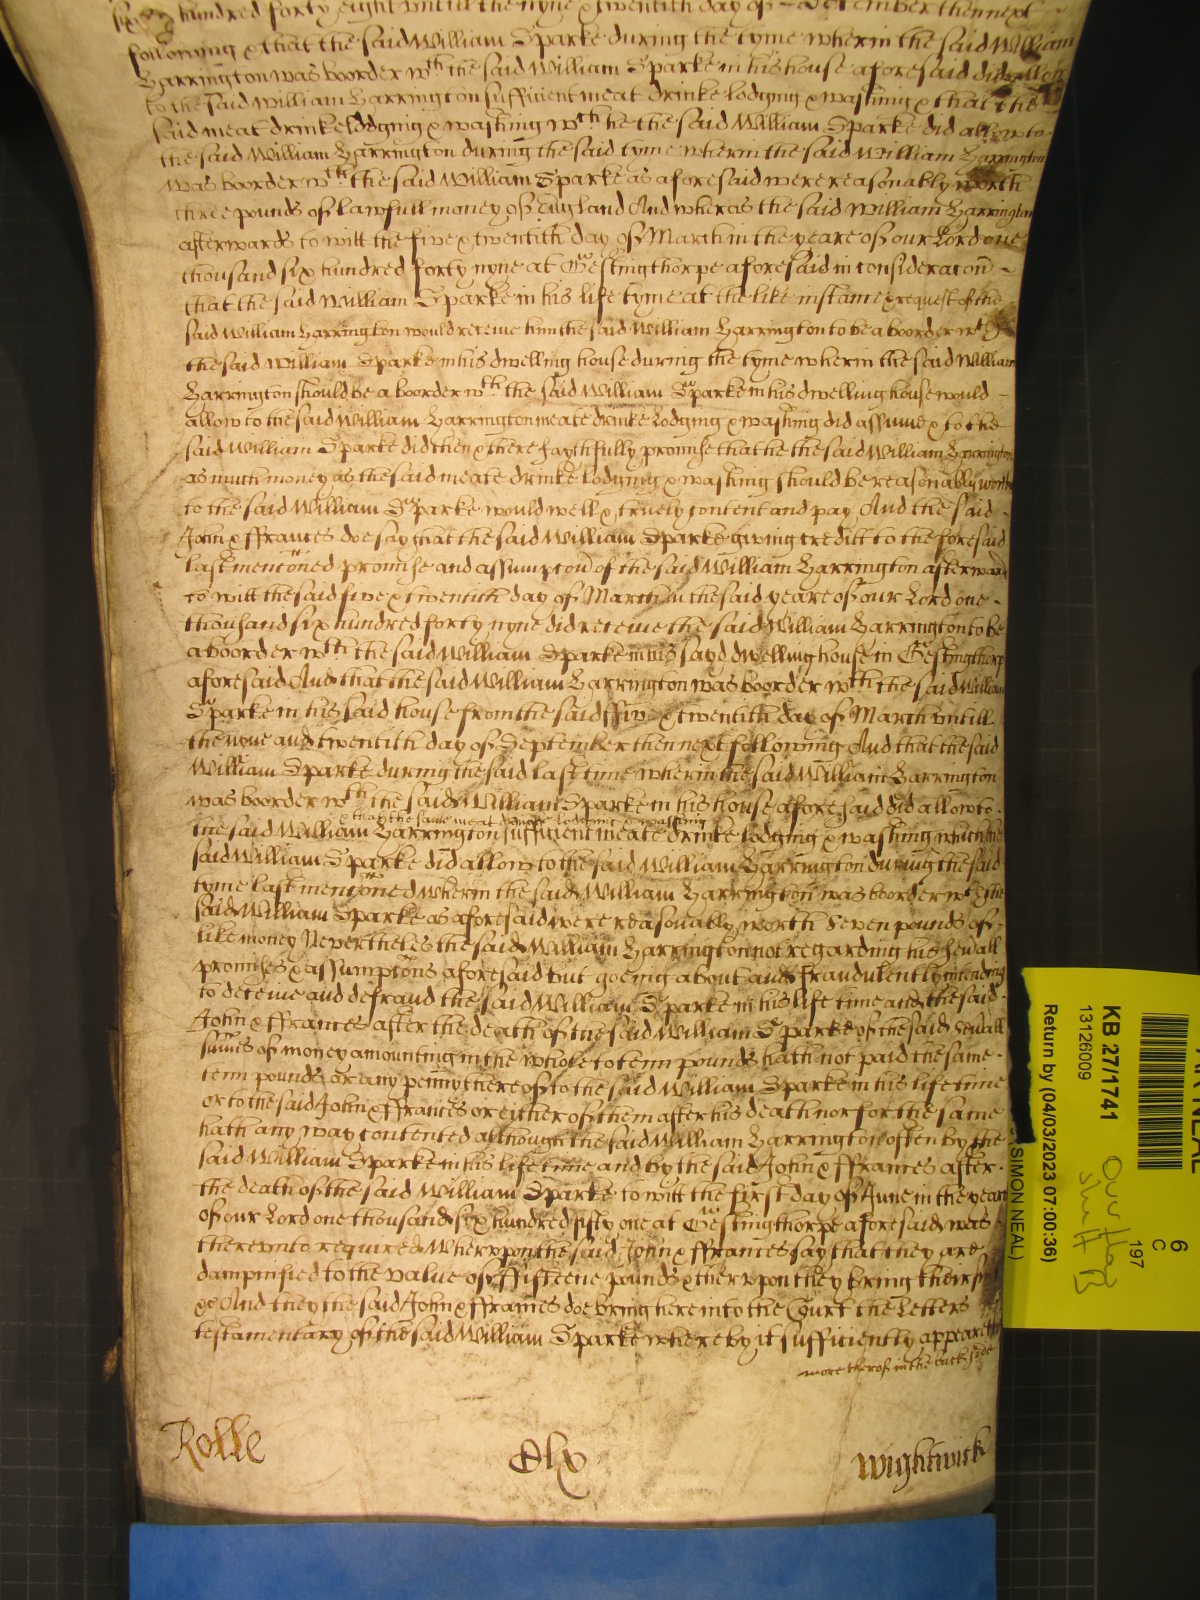 hundred forty eight untill the nyne & twentith day of September then next
following & that the said William Sparke during the tyme wherin the said William
Harrington was boorder wth the said William Sparke in his house aforesaid did allow
to the said William Harrington sufficient meat drinke lodging & washing & that the
said meat drinke lodging & washing wch he the said William Sparke did allow to
the said William Harrington during the said tyme wherin the said William Harrington
was boorder wth the said William Sparke as aforesaid were reasonably worth
three pounds of lawfull money of England And wheras the said William Harrington
afterwards to witt the five & twentith day of March in the yeare of our Lord one
thousand six hundred forty nyne at Gestingthorpe aforesaid in consideracon
that the said William Sparke in his life tyme at the like instance & request of the
said William Harrington would receive him the said William Harrington to be a boorder wth
the said William Sparke in his dwelling house during the tyme wherin the said William
Harrington should be a boorder wth the said William Sparke in his dwelling house would
allow to the said William Harrington meate drinke lodging & washing did assume & to the
said William Sparke did then & there faythfully promise that he the said William Harrington
as much money as the said meate drinke lodging & washing should be reasonably worth
to the said William Sparke would well & truely content and pay And the said
John & ffrances doe say that the said William Sparke giving creditt to the foresaid
last mencioned promise and assumpcon of the said William Harrington afterward
to witt the said five & twentith day of March in the said yeare of our Lord one
thousand six hundred forty nyne did receive the said William Harrington to be
a boorder wth the said William Sparke in his sayd dwelling house in Gestingthorp
aforesaid And that the said William Harrington was boorder wth the said William
Sparke in his said house from the said ffive & twentith day of March untill
the nyne and twentith day of September then next following And that the said
William Sparke during the said last time wherin the said William Harrington
was boorder wth the said William Sparke in his house aforesaid did allow to
& that the same meat drinke lodging & washing
the said William Harrington sufficient meate drinke lodging & washing which the
said William Sparke did allow to the said William Harrington during the said
tyme last mencioned wherin the said William Harrington was boorder wth the
said William Sparke as aforesaid were reasonably worth seven pounds of
like money Nevertheles the said William Harrington not regarding his sevrall
promises & assumpcons aforesaid but goeing about and fraudulently intending
to deceive and defraud the said William Sparke in his life time and the said
John & ffrances after the death of the said William Sparke of the said sevrall
sumes of money amounting in the whole to tenn pounds hath not paid the same
tenn pounds or any penny thereof to the said William Sparke in his life time
or to the said John & ffrances or either of them after his death nor for the same
hath any way contented although the said William Harrington often by the
said William Sparke in his life time and by the said John & ffrances after
the death of the said William Sparke to witt the first day of June in the yeare
of our Lord one thousand six hundred fifty one at Gestingthorpe aforesaid was
thereunto required Wherupon the said John & ffrances say that they are
dampnified to the value of ffifteene pounds & therupon they bring their
&c And they the said John & ffrances doe bring here into the Court the Letters
testamentary of the said William Sparke whereby it sufficiently appeareth
more therof in the back side
Rolle
Dlx
Wightwick
KB 27/1741
13126009
Return by (04/03/2023 07:00:36)
(SIMON NEAL)
6
C
197